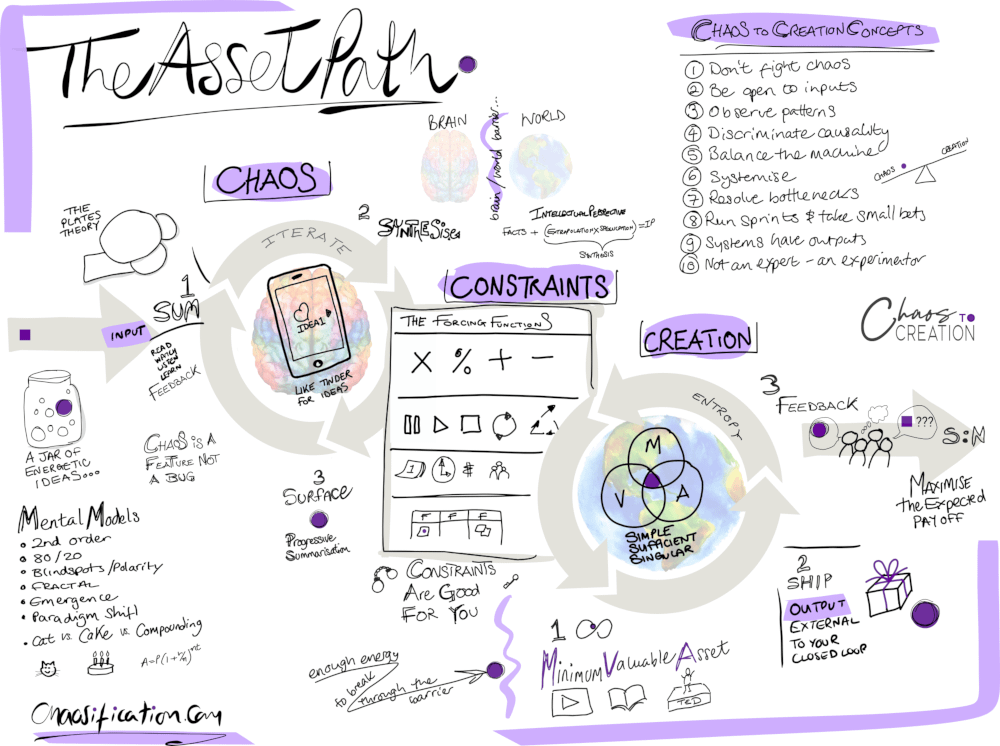 The Asset Path
CHAOS TO CREATION CONCEPTS
1 Don't fight chaos
2 Be open to inputs
3 Observe patterns
4 Discriminate causality
5 Balance the machine
6 Systemise
7 Resolve bottlenecks
8 Run sprints & take small bets
9 Systems have outputs
10 Not an expert - an experimentor
CHAOS
CREATION
BRAIN
WORLD
brain/world barrier...
INTELLECTUAL PERSPECTIVE
FACTS + (EXTRAPOLATION X SPECULATION) = IP
SYNTHESIS
CHAOS
THE
PLATES
THEORY
ITERATE
2
SYNTHESISE
1
SUM
INPUT
READ
WATCH
LISTEN
LEARN
FEEDBACK
IDEA1
LIKE TINDER
FOR IDEAS
A JAR OF
ENERGETIC
IDEAS...
CHAOS IS A
FEATURE NOT
A BUG
3
SURFACE
Progressive
Summarisation
Mental Models
• 2nd order
• 80/20
• Blindspots/Polarity
• FRACTAL
• Emergence
• Paradigm Shift
• Cat vs. Cake vs. Compounding
A=P(1+r/n)^nt
Chaosification.com
CONSTRAINTS
THE FORCING FUNCTIONS
× % + −
1 #
F F F
CONSTRAINTS
ARE GOOD
FOR YOU
enough energy
to break
through the
barrier
CREATION
ENTROPY
M
V A
SIMPLE
SUFFICIENT
SINGULAR
1
Minimum Valuable Asset
TED
2
SHIP
OUTPUT
EXTERNAL
TO YOUR
CLOSED LOOP
Chaos TO
CREATION
3
FEEDBACK
???
S:N
MAXIMISE
the Expected
PAY OFF